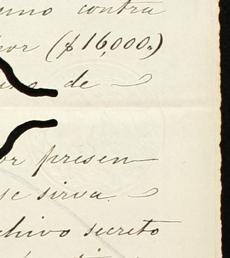 uno contra
por ($16,000.)
de
or presen
se sirva
chivo secreto